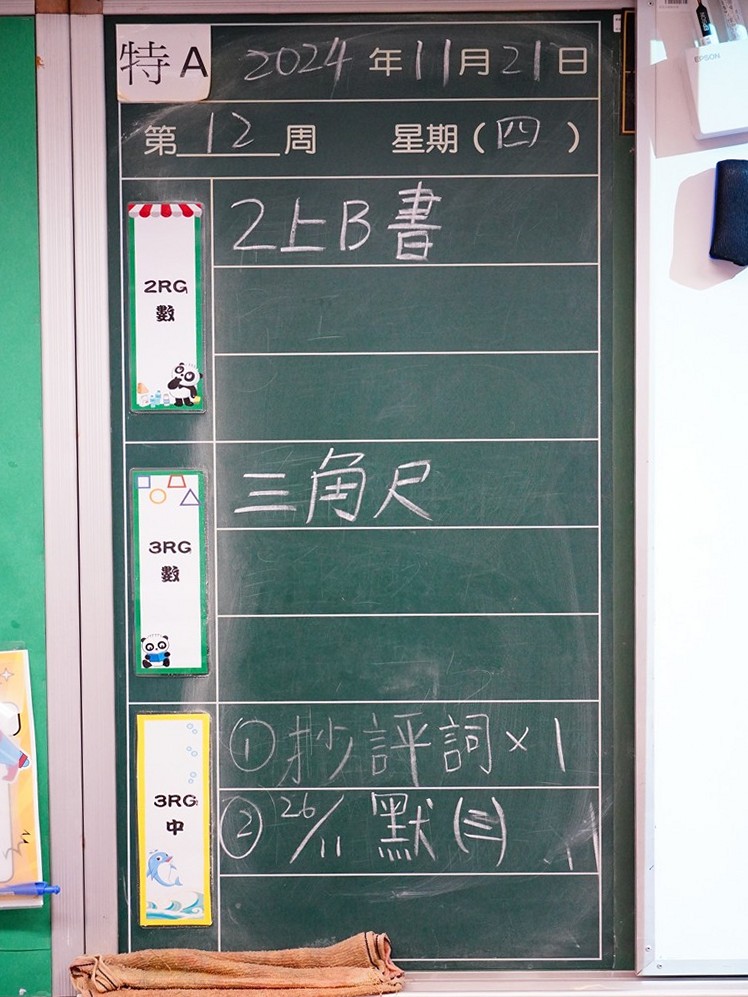 特 A 2024 年 11 月 21 日
第 12 周 星期 ( 四 )
2RG 數
2上B書
3RG 數
三角尺
3RG 中
① 抄評詞 × 1
② 26/11 默 (三)
EPSON